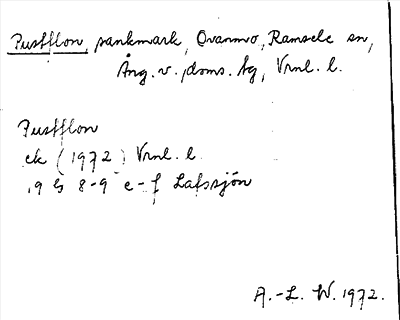 Pustflon, sankmark, Ovanmo, Ramsele sn,
Ång. v. doms. tg, Vrnl. l.
Pustflon
ek (1972) Vrnl. l.
19 G 8-9 e-f Lafssjön
A.-L. W. 1972.